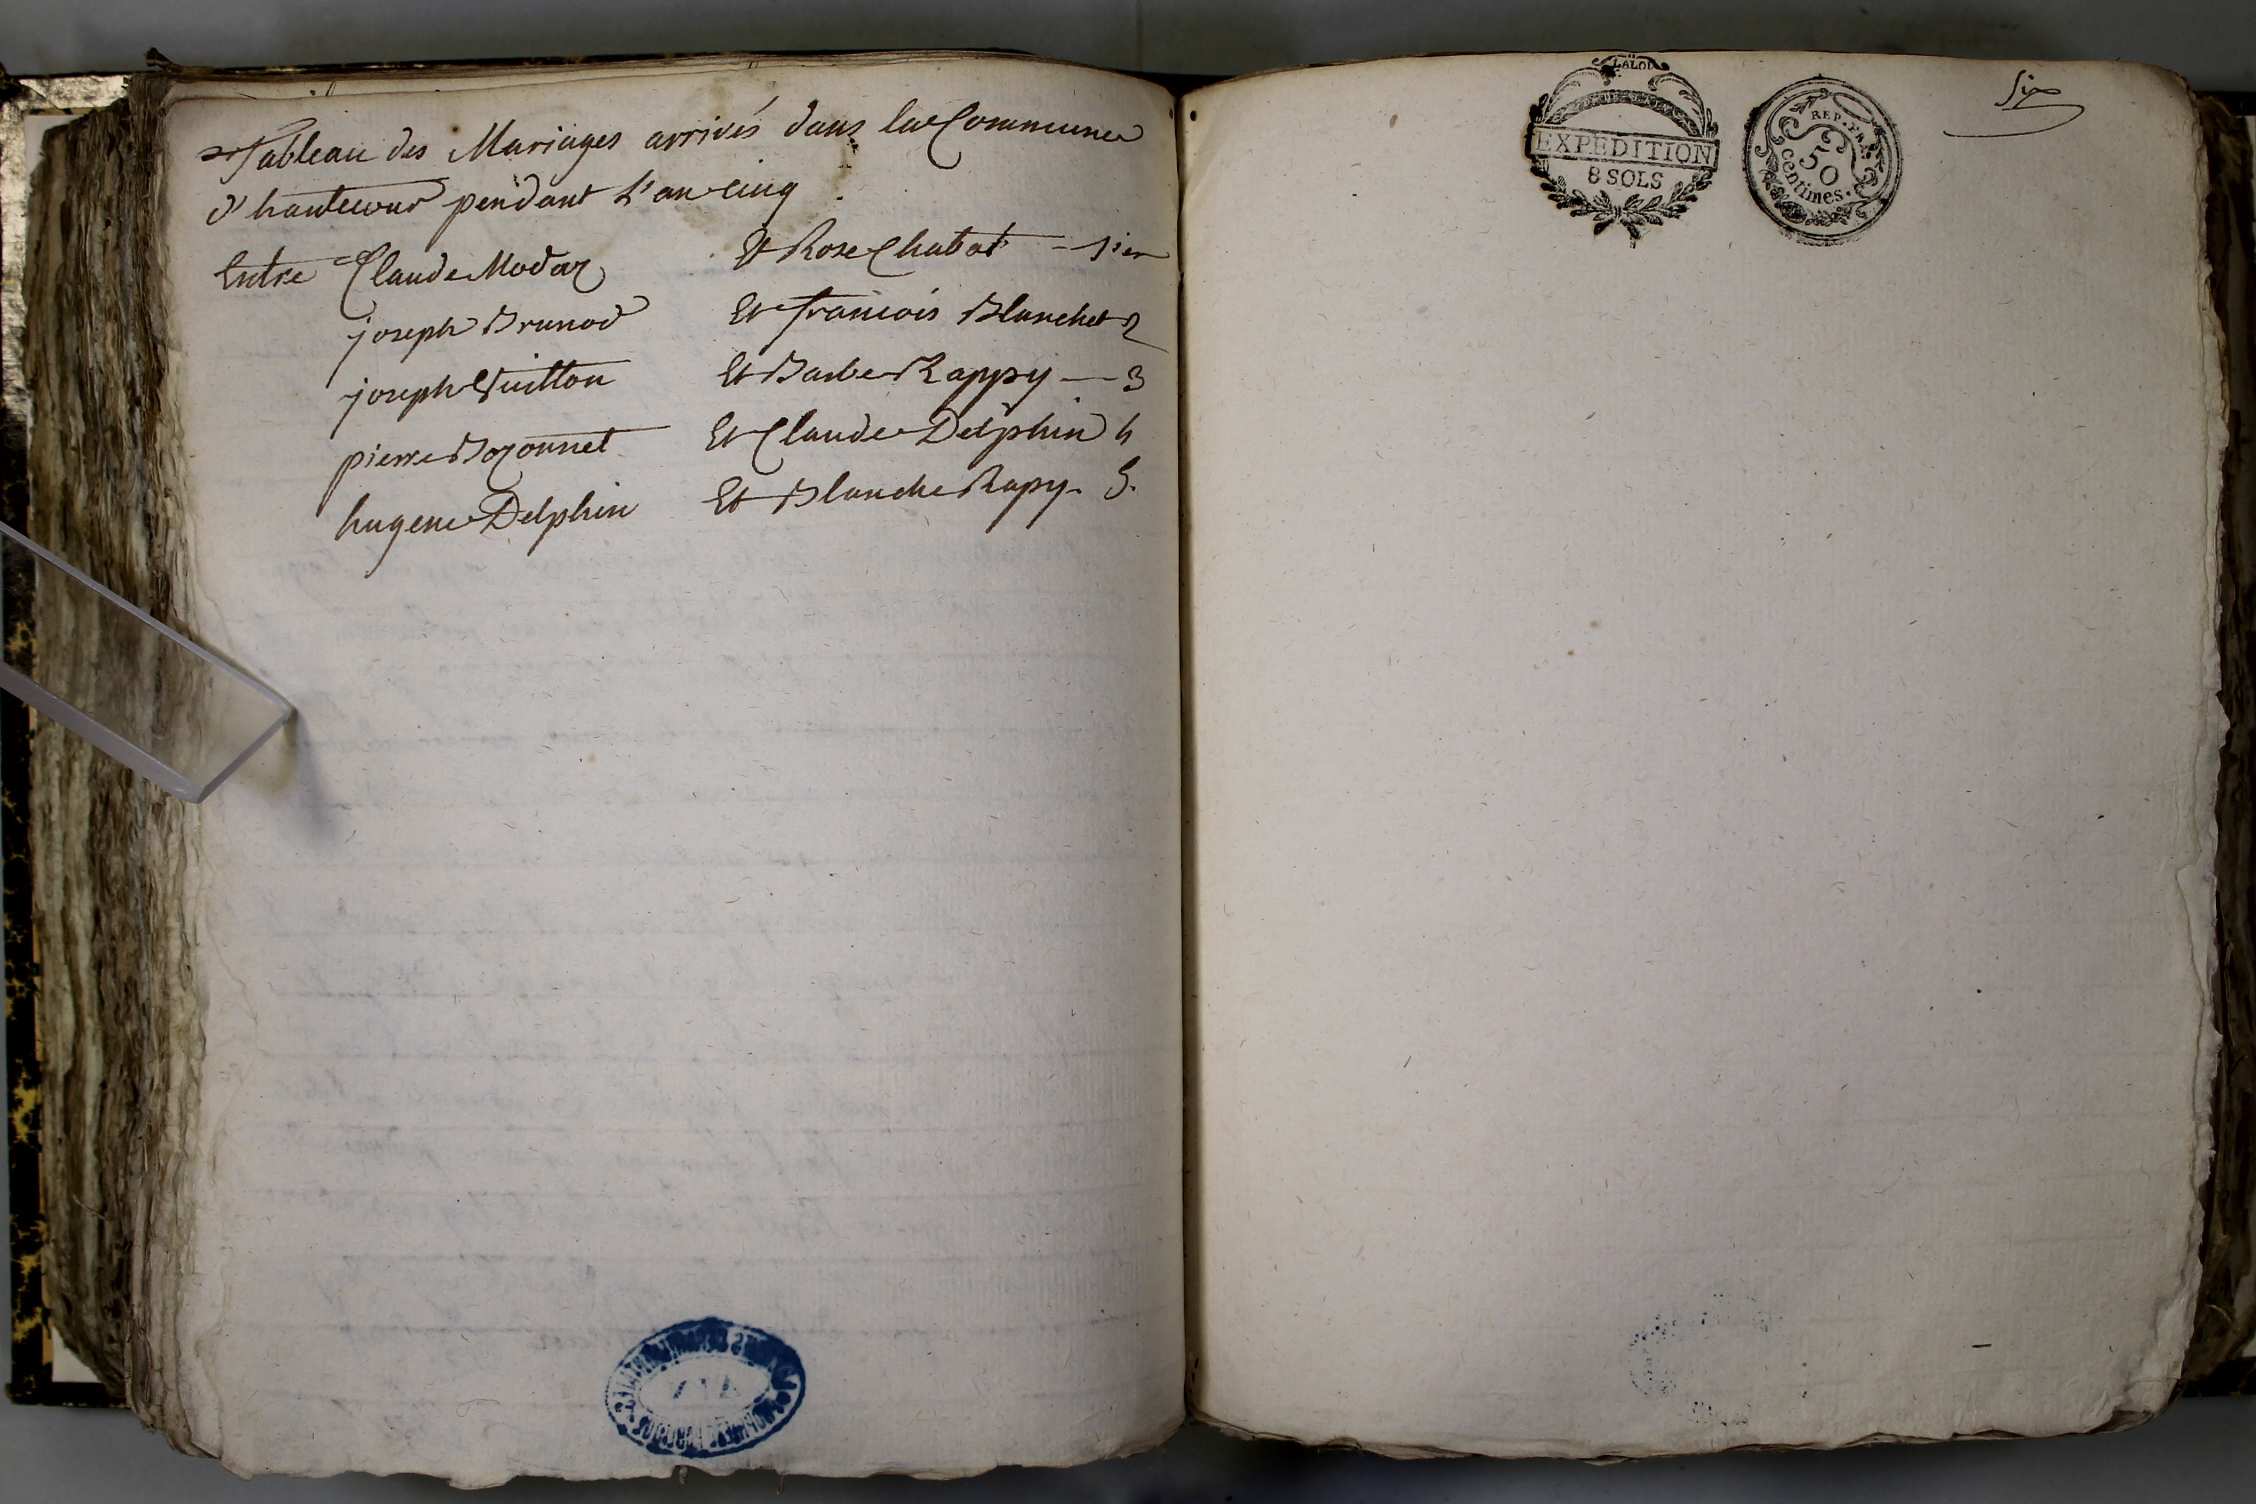 Tableau des Mariages arrivés dans la Commune
d'hautecour pendant L'an cinq
Entre Claude Modaz Et Rose Chabot 1ier
joseph Brunod Et francois Blanchet 2
joseph Guillon Et Barbe Rappy 3
pierre Bozonnet Et Claude Delphin 4
hugene Delphin Et Blanche Rapy 5.
LALOI
EXPEDITION
8 SOLS
REP. FRA.
50
centimes.
Six